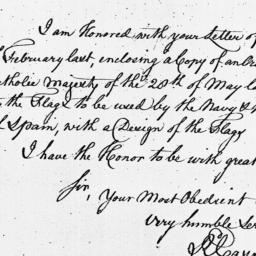 I am Honored with your Letter of
February last, enclosing a Copy of an
Catholic Majesty of the 28th of May la
the Flags to be used by the Navy &
Spain, with a Design of the Flags
I have the Honor to be with great
Sir,
Your Most Obedient
very humble Ser